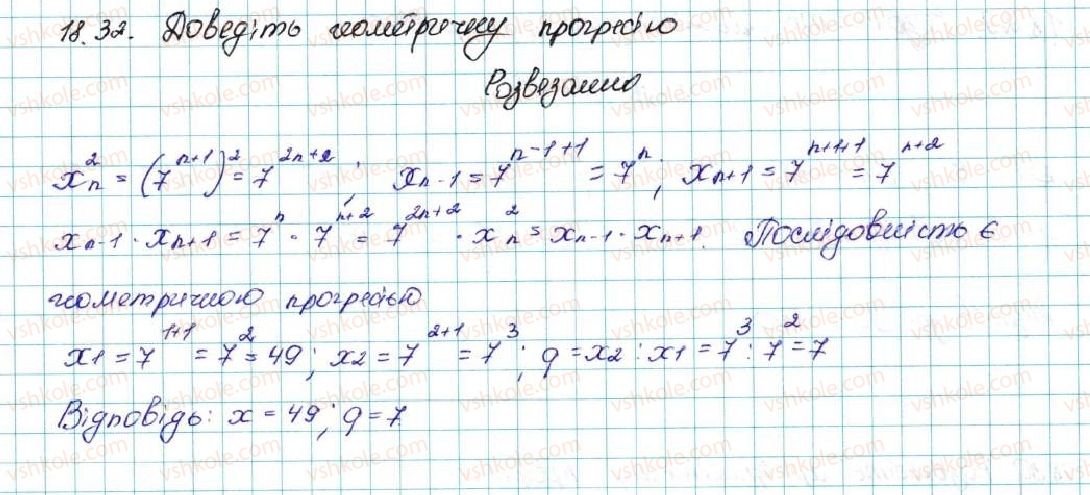 18.32. Доведіть геометричну прогресію
Розвезанню
x²ₙ = (7ⁿ⁺¹)² = 7²ⁿ⁺²; xₙ₋₁ = 7ⁿ⁻¹⁺¹ = 7ⁿ; xₙ₊₁ = 7ⁿ⁺¹⁺¹ = 7ⁿ⁺²
xₙ₋₁ · xₙ₊₁ = 7ⁿ · 7ⁿ⁺² = 7²ⁿ⁺² · x²ₙ = xₙ₋₁ · xₙ₊₁. Послідовність є
геометричною прогресією
x1 = 7¹⁺¹ = 7² = 49; x2 = 7²⁺¹ = 7³; q = x2 : x1 = 7³ : 7² = 7
Відповідь: x = 49; q = 7